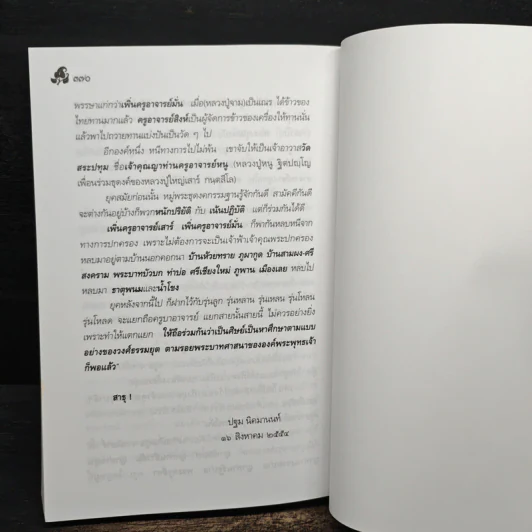 ๓๓๖
พรรษาแก่กว่าเพิ่นครูอาจารย์มั่น เมื่อ(หลวงปู่จาม)เป็นเณร ได้ข้าวของ
ไทยทานมาแล้ว ครูอาจารย์สิงห์เป็นผู้จัดการข้าวของเครื่องให้ทานนั้น
แล้วพาไปถวายทานแบ่งปันเป็นวัด ๆ ไป
อีกองค์หนึ่ง หนีทางการไปไม่พ้น เขาจับให้เป็นเจ้าอาวาสวัด
สระปทุม ชื่อเจ้าคุณญาท่านครูอาจารย์หนู (หลวงปู่หนู ฐิตปญฺโญ
เพื่อนร่วมธุดงค์ของหลวงปู่ใหญ่เสาร์ กนฺตสีโล)
ยุคสมัยก่อนนั้น หมู่พระธุดงคกรรมฐานรู้จักกันดี สามัคคีกันดี
จะต่างกันอยู่บ้างก็พวกหนักปริยัติ กับ เน้นปฏิบัติ แต่ก็ร่วมกันได้ดี
เพิ่นครูอาจารย์เสาร์ เพิ่นครูอาจารย์มั่น ก็พากันหลบหนีจาก
ทางการปกครอง เพราะไม่ต้องการจะเป็นเจ้าฟ้าเจ้าคุณพระปกครอง
หลบมาอยู่ตามบ้านนอกคอกนา บ้านห้วยทราย ภูผากูด บ้านสามผง-ศรี
สงคราม พระบาทบัวบก ท่าบ่อ ศรีเชียงใหม่ ภูพาน เมืองเลย หลบไป
หลบมา ธาตุพนมและน้ำโขง
ยุคหลังจากนี้ไป ก็ฝากไว้กับรุ่นลูก รุ่นหลาน รุ่นเหลน รุ่นโหลน
รุ่นโหลด จะแยกถือครูบาอาจารย์ แยกสายนั้นสายนี้ ไม่ควรอย่างยิ่ง
เพราะทำให้แตกแยก ให้ถือร่วมกันว่าเป็นศิษย์เป็นหาศึกษาตามแบบ
อย่างของวงศ์ธรรมยุต ตามรอยพระบาทศาสนาขององค์พระพุทธเจ้า
ก็พอแล้ว"
สาธุ !
ปฐม นิคมานนท์
๑๖ สิงหาคม ๒๕๕๔